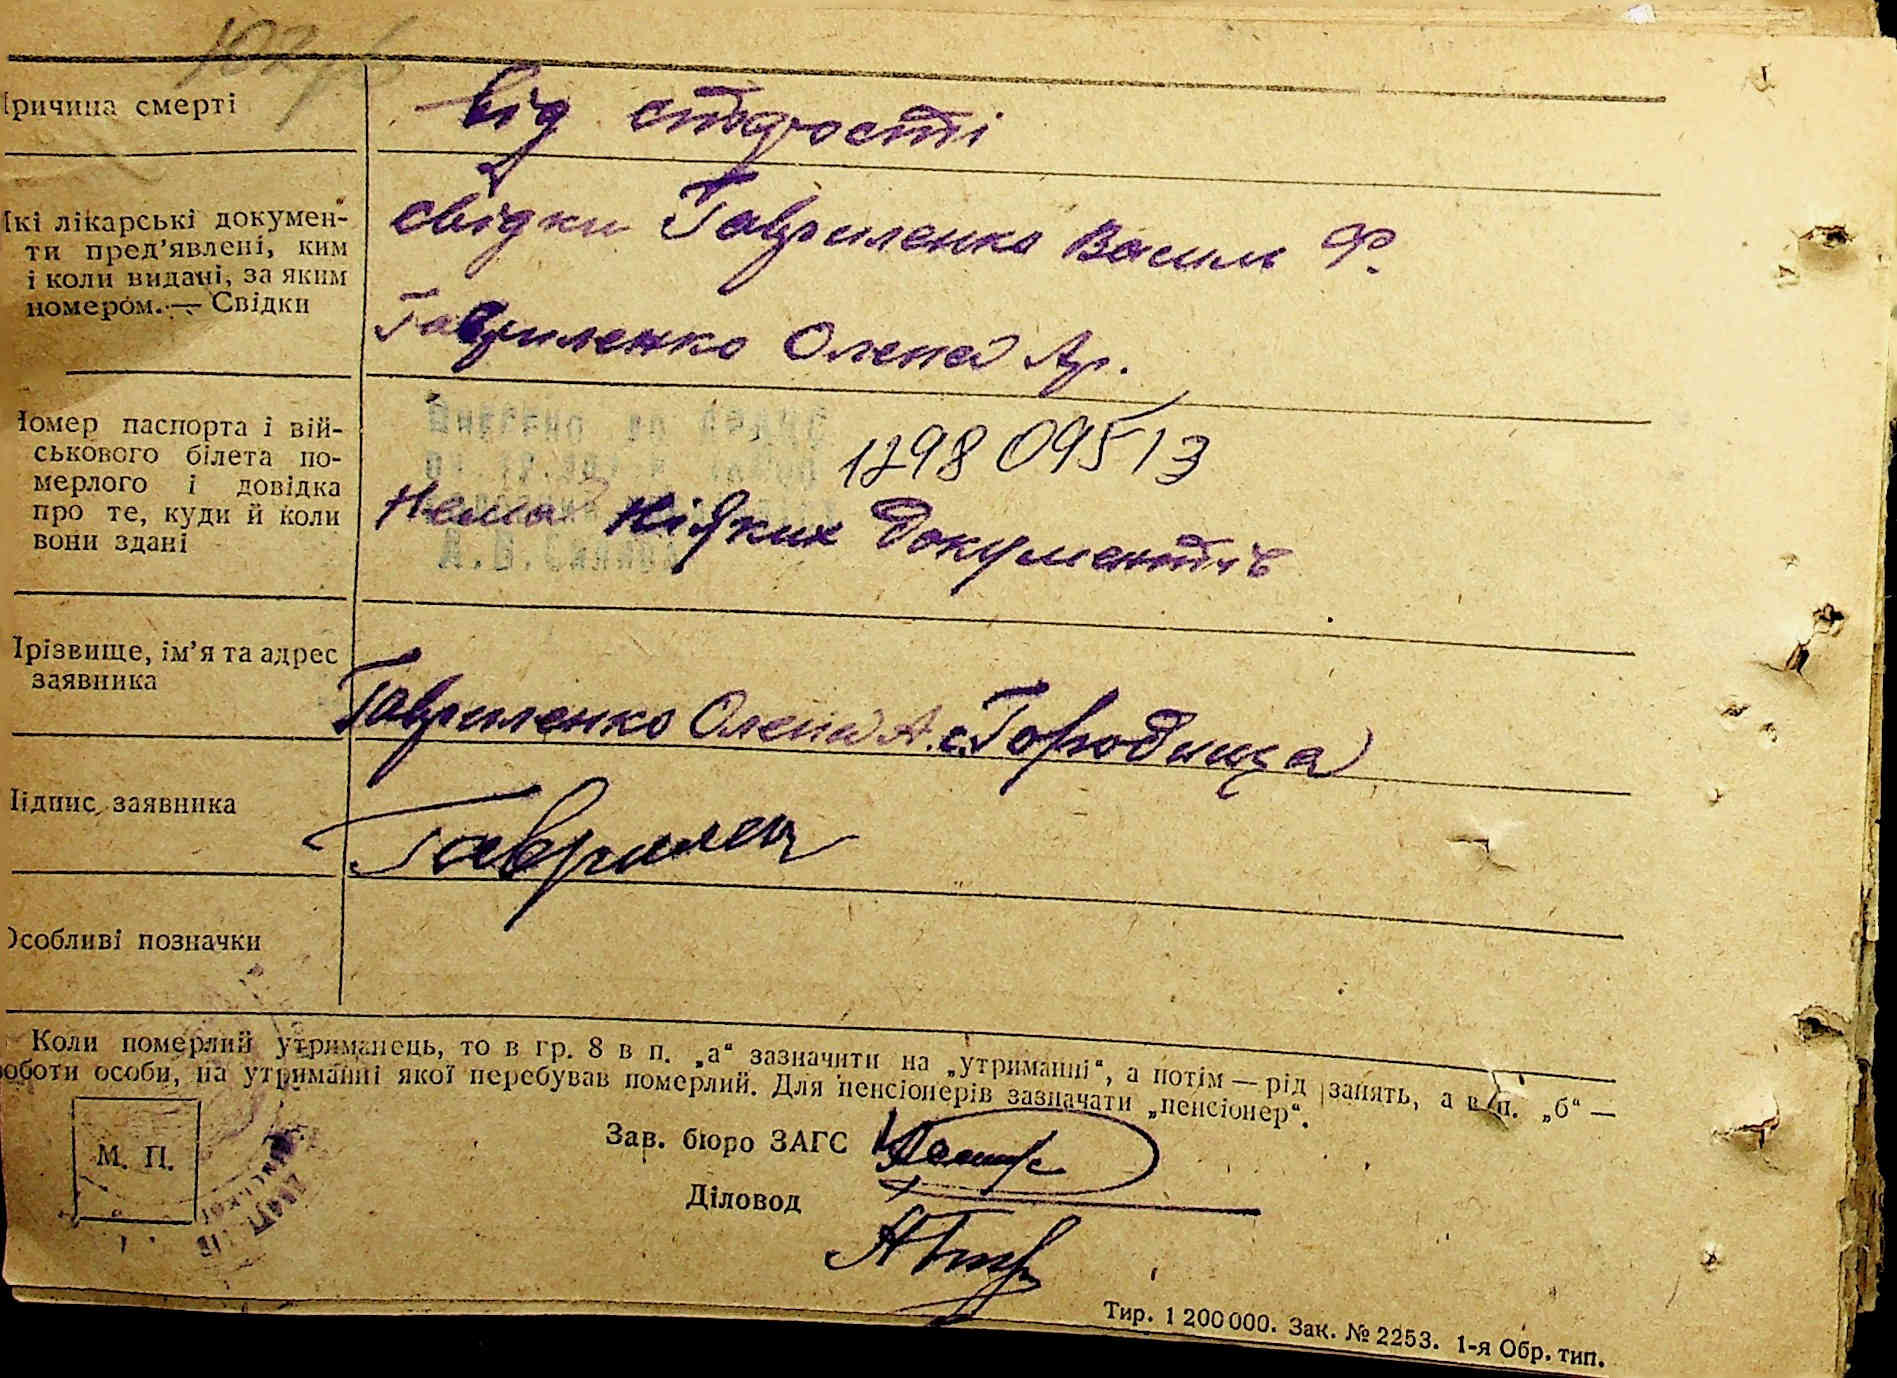 Причина смерті
від старости
Які лікарські докумен-
ти пред'явлені, ким
і коли видані, за яким
номером. — Свідки
свідки Гавриленко Васили Ф.
Гавриленко Олена Ар.
Номер паспорта і вій-
ськового білета по-
мерлого і довідка
про те, куди й коли
вони здані
1298 09513
Нема ніяких документів
Прізвище, ім'я та адрес
заявника
Гавриленко Олена А. с. Городища
Підпис заявника
Гаврилен
Особливі позначки
Коли померлий утриманець, то в гр. 8 в п. „а“ зазначити на „утриманні“, а потім — рід занять, а в п. „б“ —
роботи особи, на утриманні якої перебував померлий. Для пенсіонерів зазначати „пенсіонер“.
М. П.
Зав. бюро ЗАГС
Діловод
Тир. 1 200 000. Зак. № 2253. 1-я Обр. тип.